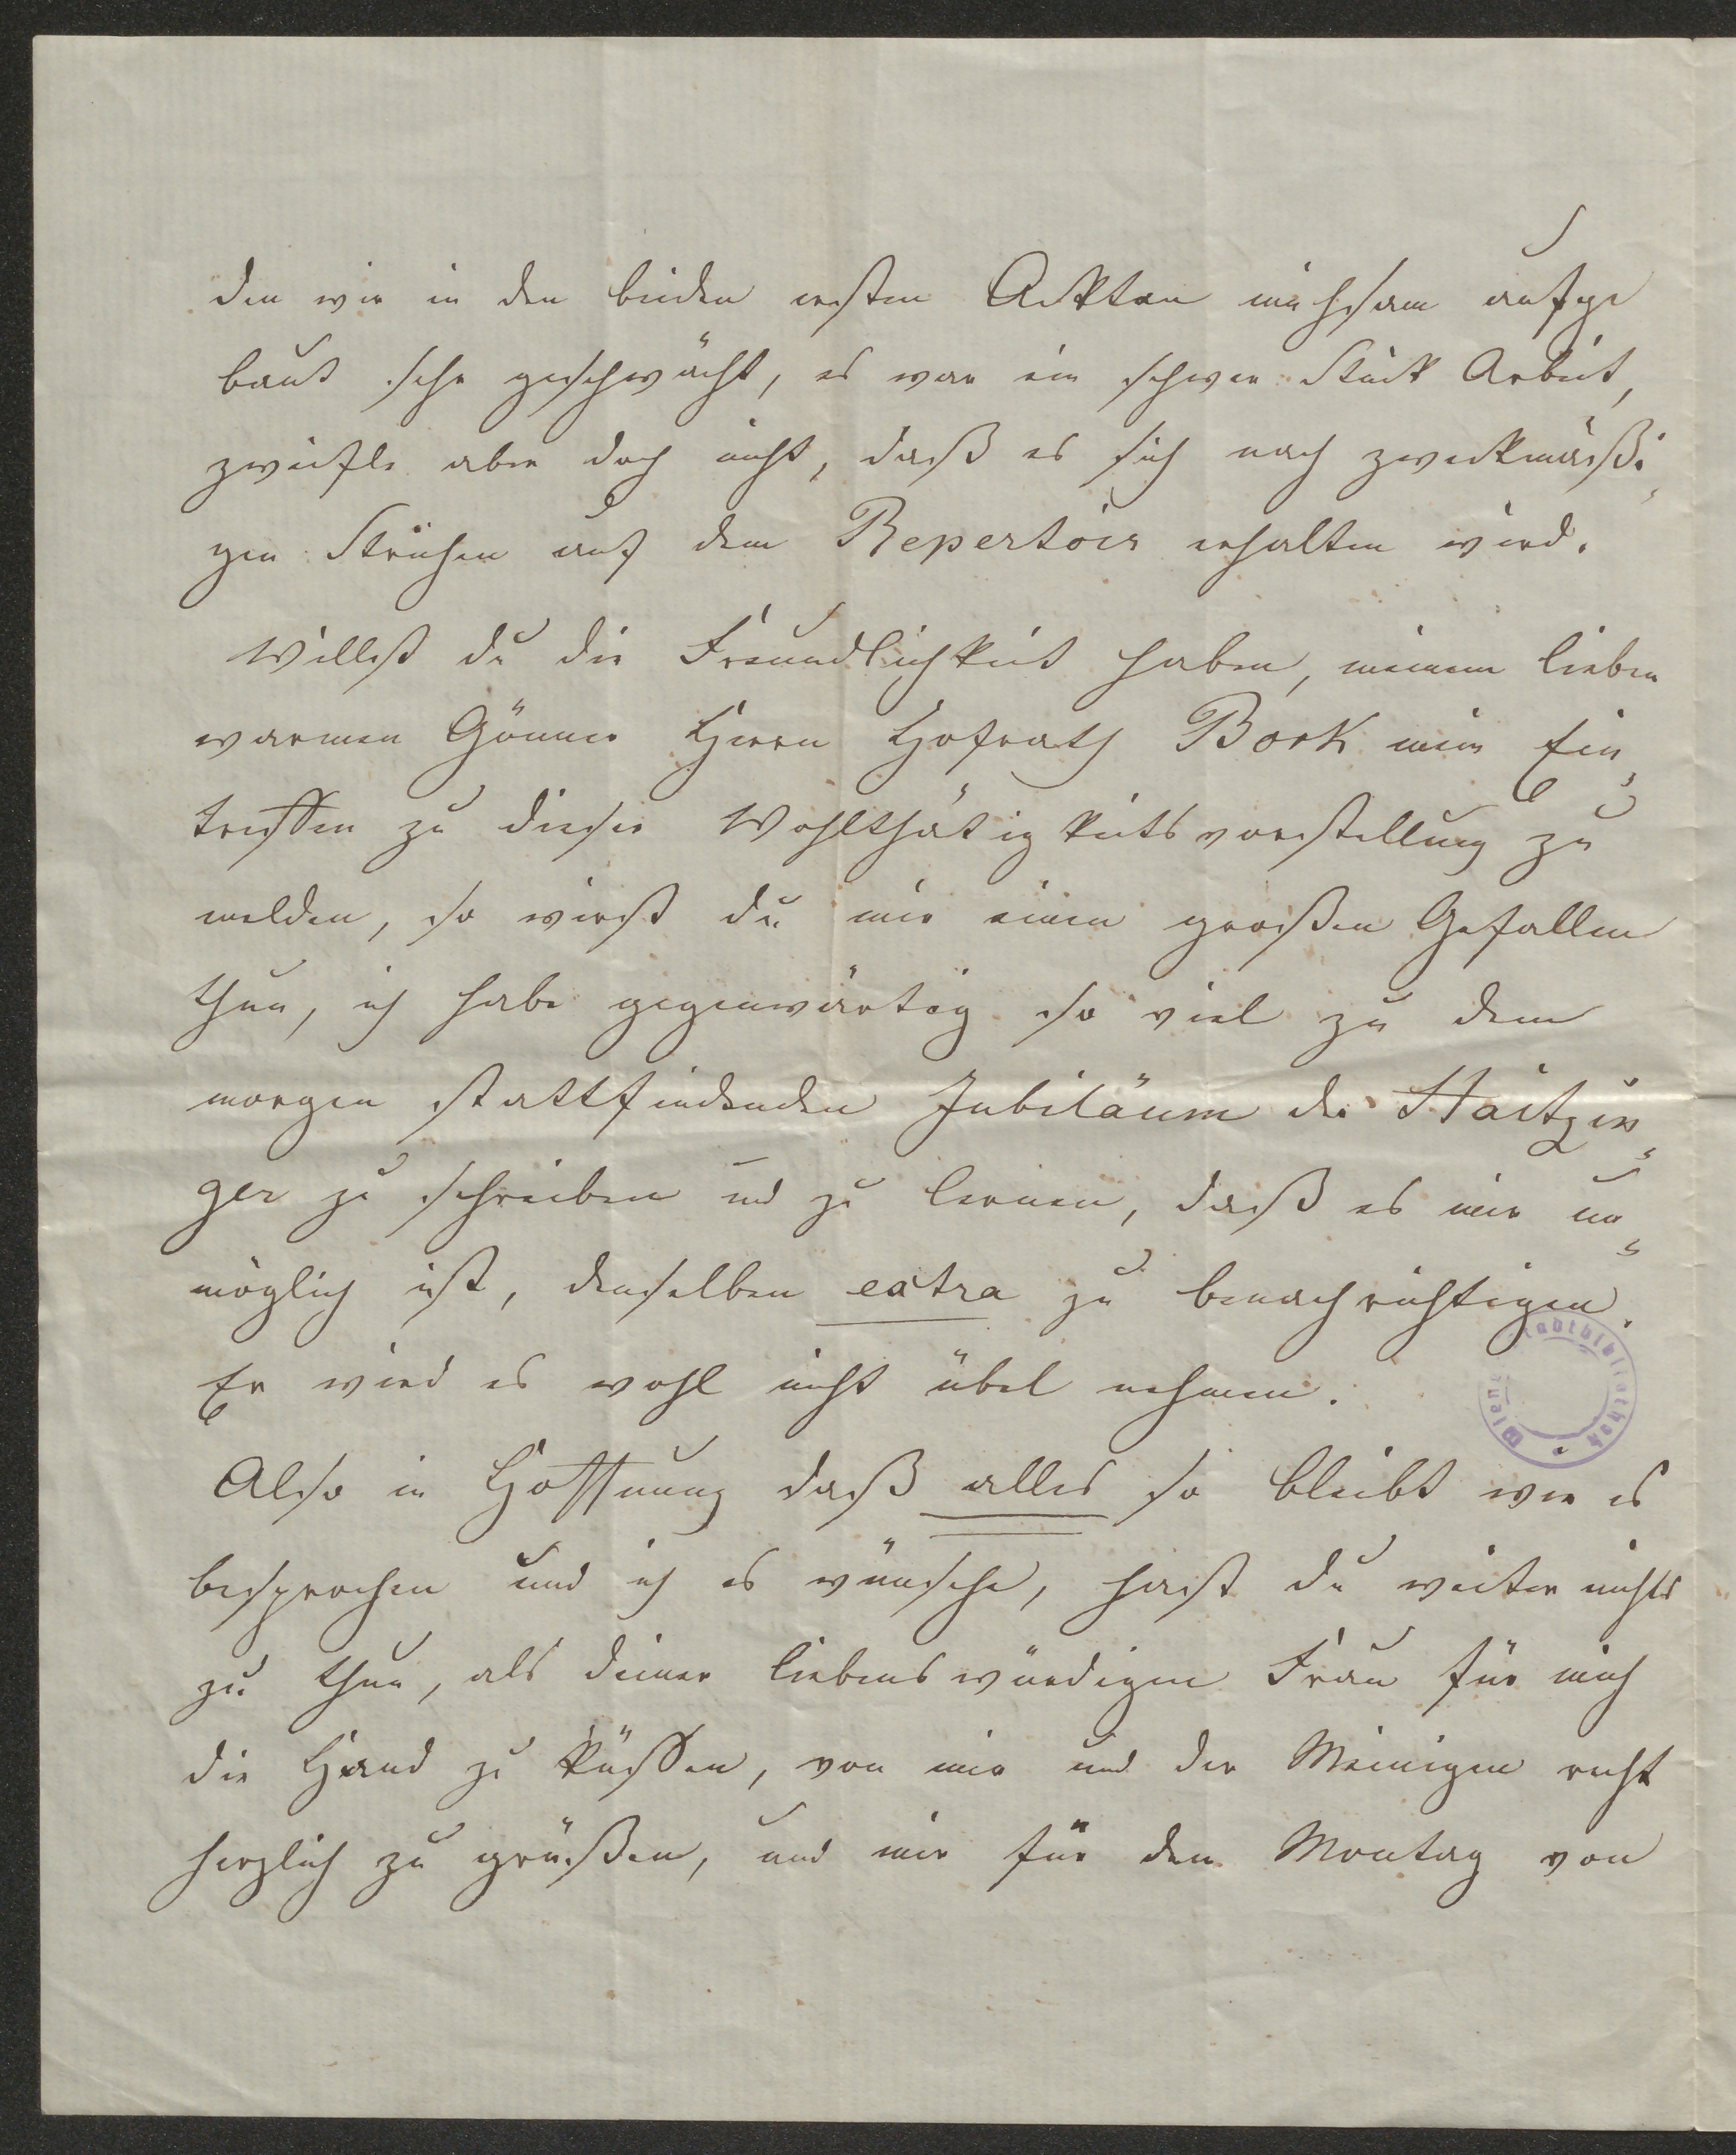 den wir in den beiden ersten Ackten mühsam aufge
baut sehr geschwächt, es war ein schwer Stück Arbeit,
zweifle aber doch nicht, daß es sich nach zweckmäßi-
gen Strichen auf dem Repertoir erhalten wird.
Willst du die Freundlichkeit haben, meinem lieben
warmen Gönner Herrn Hofrath Bork mein Ein-
treffen zu dieser Wohlthätigkeitsvorstellung zu
melden, so wirst du mir einen großen Gefallen
thun, ich habe gegenwärtig so viel zu dem
morgen stattfindenden Jubiläum der Haitzin-
ger zu schreiben und zu lernen, daß es mir un-
möglich ist, denselben extra zu benachrichtigen.
Er wird es wohl nicht übel nehmen.
Also in Hoffnung daß alles so bleibt wie es
besprochen und ich es wünsche, hast du weiter nichts
zu thun, als deiner liebenswürdigen Frau für mich
die Hand zu küssen, von mir und der Meinigen recht
herzlich zu grüßen, und mir für den Montag von
Wiener Stadtbibliothek